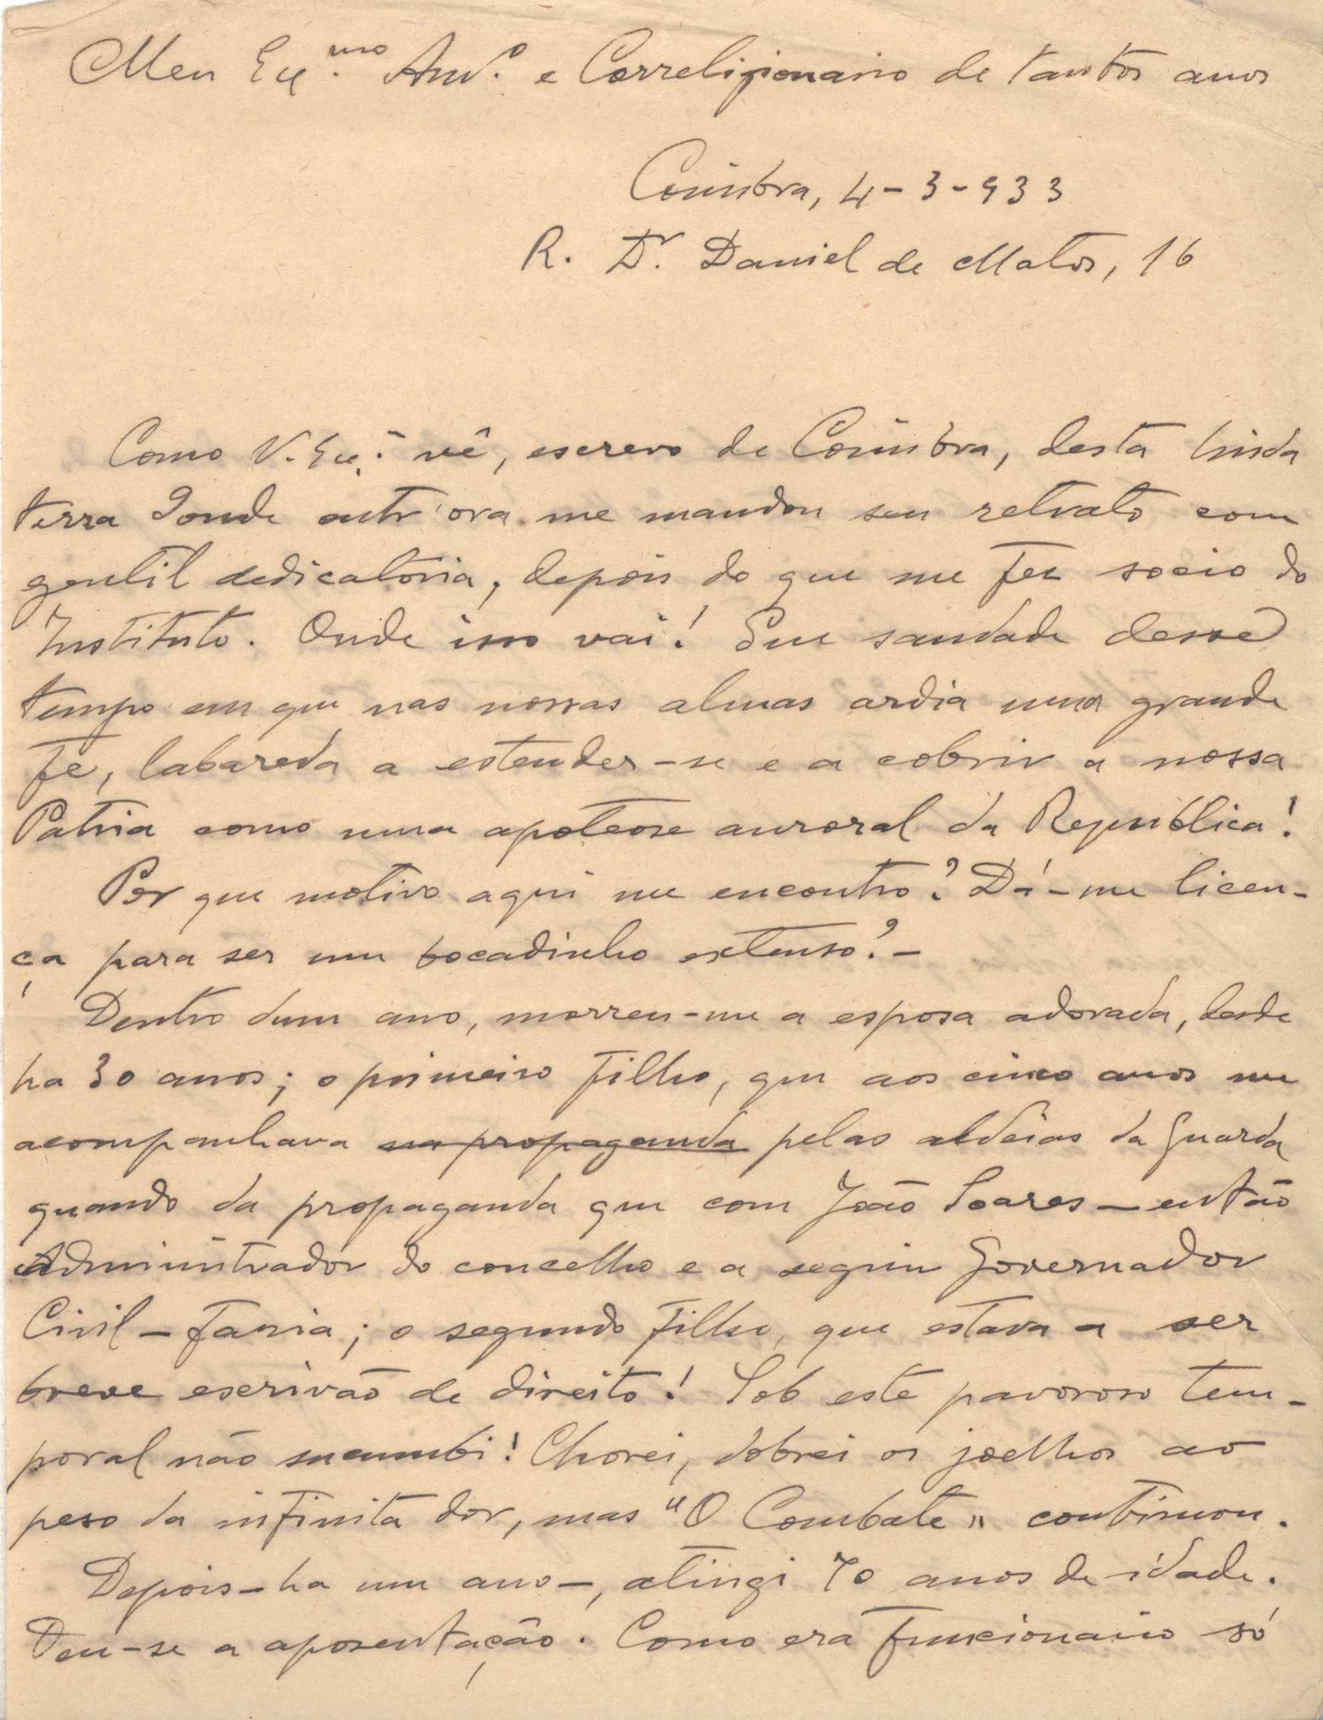 Meu Ex.mo Am.º e Correligionario de tantos anos
Coimbra, 4-3-933
R. Dr. Daniel de Matos, 16
Como V. Ex.ª vê, escrevo de Coimbra, desta linda
terra donde outr'ora me mandou seu retrato com
gentil dedicatoria, depois do que me fez socio do
Instituto. Onde isso vai! Que saudade desse
tempo em que nas nossas almas ardia uma grande
fé, labareda a estender-se e a cobrir a nossa
Patria como numa apoteose auroral da República!
Por que motivo aqui me encontro? Dá-me licen-
ça para ser um bocadinho extenso?-
Dentro dum ano, morreu-me a esposa adorada, desde
ha 30 anos; o primeiro filho, que aos cinco anos me
acompanhava na propaganda pelas aldeias da Guarda
quando da propaganda que com João Soares - então
Administrador do concelho e a seguir Governador
Civil - fazia; o segundo filho, que estava a ser
breve escrivão de direito! Sob este pavoroso tem-
poral não sucumbi! Chorei, dobrei os joelhos ao
peso da infinita dor, mas "O Combate" continuou.
Depois - ha um ano -, atingi 70 anos de idade.
Deu-se a aposentação. Como era funcionario só